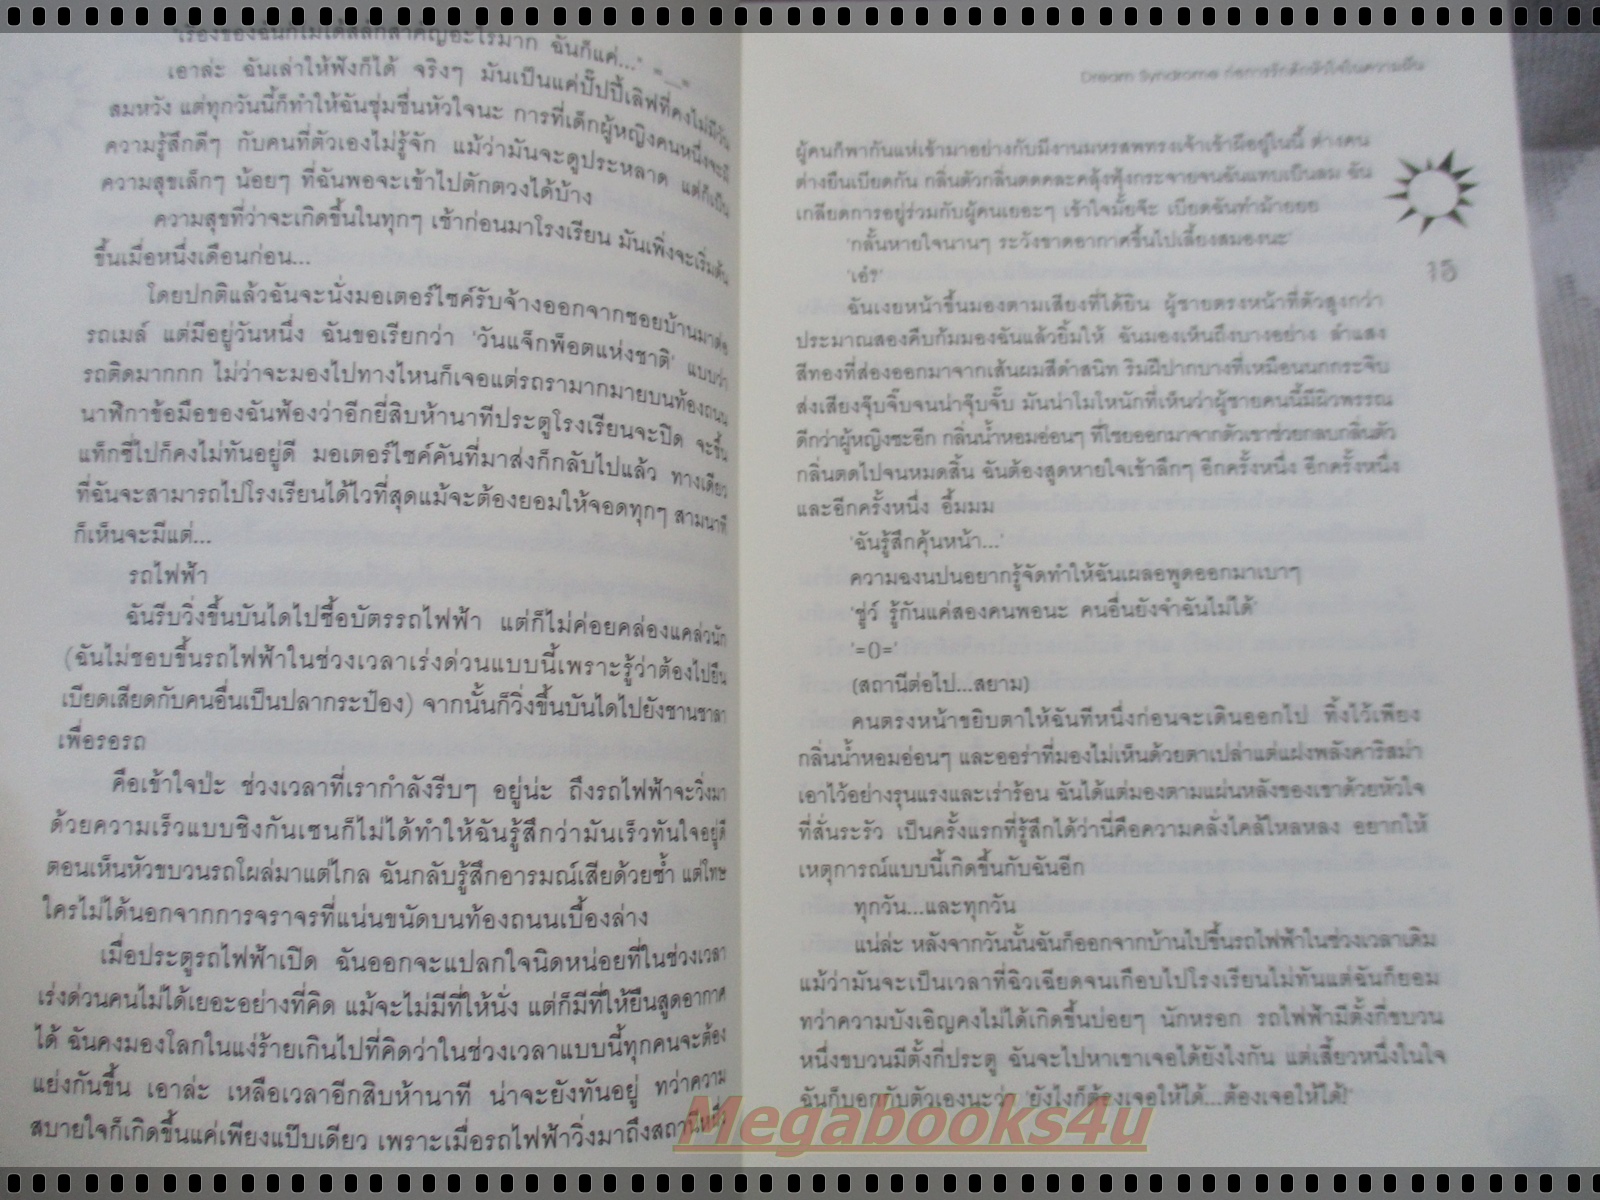 'เรื่องของฉันก็ไม่ได้สลักสำคัญอะไรมาก ฉันก็แค่...'
เอาล่ะ ฉันเล่าให้ฟังก็ได้ จริงๆ มันเป็นแค่ปั๊ปปี้เลิฟที่คงไม่มีวัน
สมหวัง แต่ทุกวันนี้ก็ทำให้ฉันชุ่มชื่นหัวใจนะ การที่เด็กผู้หญิงคนหนึ่งจะมี
ความรู้สึกดีๆ กับคนที่ตัวเองไม่รู้จัก แม้ว่ามันจะดูประหลาด แต่ก็เป็น
ความสุขเล็กๆ น้อยๆ ที่ฉันพอจะเข้าไปตักตวงได้บ้าง
ความสุขที่ว่าจะเกิดขึ้นในทุกๆ เช้าก่อนมาโรงเรียน มันเพิ่งจะเริ่มต้น
ขึ้นเมื่อหนึ่งเดือนก่อน...
โดยปกติแล้วฉันจะนั่งมอเตอร์ไซค์รับจ้างออกจากซอยบ้านมาต่อ
รถเมล์ แต่มีอยู่วันหนึ่ง ฉันขอเรียกว่า 'วันแจ็กพ็อตแห่งชาติ' แบบว่า
รถติดมากกก ไม่ว่าจะมองไปทางไหนก็เจอแต่รถรามากมายบนท้องถนน
นาฬิกาข้อมือของฉันฟ้องว่าอีกยี่สิบห้านาทีประตูโรงเรียนจะปิด จะขึ้น
แท็กซี่ไปก็คงไม่ทันอยู่ดี มอเตอร์ไซค์คันที่มาส่งก็กลับไปแล้ว ทางเดียว
ที่ฉันจะสามารถไปโรงเรียนได้ไวที่สุดแม้จะต้องยอมให้จอดทุกๆ สามนาที
ก็เห็นจะมีแต่...
รถไฟฟ้า
ฉันรีบวิ่งขึ้นบันไดไปซื้อบัตรรถไฟฟ้า แต่ก็ไม่ค่อยคล่องแคล่วนัก
(ฉันไม่ชอบขึ้นรถไฟฟ้าในช่วงเวลาเร่งด่วนแบบนี้เพราะรู้ว่าต้องไปยืน
เบียดเสียดกับคนอื่นเป็นปลากระป๋อง) จากนั้นก็วิ่งขึ้นบันไดไปยังชานชาลา
เพื่อรอรถ
คือเข้าใจป่ะ ช่วงเวลาที่เรากำลังรีบๆ อยู่น่ะ ถึงรถไฟฟ้าจะวิ่งมา
ด้วยความเร็วแบบชิงกันเซนก็ไม่ได้ทำให้ฉันรู้สึกว่ามันเร็วทันใจอยู่ดี
ตอนเห็นหัวขบวนรถโผล่มาแต่ไกล ฉันกลับรู้สึกอารมณ์เสียด้วยซ้ำ แต่โทษ
ใครไม่ได้นอกจากการจราจรที่แน่นขนัดบนท้องถนนเบื้องล่าง
เมื่อประตูรถไฟฟ้าเปิด ฉันออกจะแปลกใจนิดหน่อยที่ในช่วงเวลา
เร่งด่วนคนไม่ได้เยอะอย่างที่คิด แม้จะไม่มีที่ให้นั่ง แต่ก็มีที่ให้ยืนสูดอากาศ
ได้ ฉันคงมองโลกในแง่ร้ายเกินไปที่คิดว่าในช่วงเวลาแบบนี้ทุกคนจะต้อง
แย่งกันขึ้น เอาล่ะ เหลือเวลาอีกสิบห้านาที น่าจะยังทันอยู่ ทว่าความ
สบายใจก็เกิดขึ้นแค่เพียงแป๊บเดียว เพราะเมื่อรถไฟฟ้าวิ่งมาถึงสถานีหนึ่ง
Dream Syndrome ก่อการรักดักหัวใจในความฝัน
ผู้คนก็พากันแห่เข้ามาอย่างกับมีงานมหรสพทรงเจ้าเข้าผีอยู่ในนี้ ต่างคน
ต่างยืนเบียดกัน กลิ่นตัวกลิ่นตดคละคลุ้งฟุ้งกระจายจนฉันแทบเป็นลม ฉัน
เกลียดการอยู่ร่วมกับผู้คนเยอะๆ เข้าใจมั้ยจ๊ะ เบียดฉันทำม้ายยย
'กลั้นหายใจนานๆ ระวังขาดอากาศขึ้นไปเลี้ยงสมองนะ'
'เอ๋ร'
ฉันเงยหน้าขึ้นมองตามเสียงที่ได้ยิน ผู้ชายตรงหน้าที่ตัวสูงกว่า
ประมาณสองคืบก้มมองฉันแล้วยิ้มให้ ฉันมองเห็นถึงบางอย่าง ลำแสง
สีทองที่ส่องออกมาจากเส้นผมสีดำสนิท ริมฝีปากบางที่เหมือนนกกระจิบ
ส่งเสียงจุ๊บจิ๊บจนน่าจุ๊บจั๊บ มันน่าโมโหนักที่เห็นว่าผู้ชายคนนี้มีผิวพรรณ
ดีกว่าผู้หญิงซะอีก กลิ่นน้ำหอมอ่อนๆ ที่โชยออกมาจากตัวเขาช่วยกลบกลิ่นตัว
กลิ่นตดไปจนหมดสิ้น ฉันต้องสูดหายใจเข้าลึกๆ อีกครั้งหนึ่ง อีกครั้งหนึ่ง
และอีกครั้งหนึ่ง อื้มมม
'ฉันรู้สึกคุ้นหน้า...'
ความฉงนปนอยากรู้จัดทำให้ฉันเผลอพูดออกมาเบาๆ
'ชู่ว์ รู้กันแค่สองคนพอนะ คนอื่นยังจำฉันไม่ได้'
'=()='
(สถานีต่อไป...สยาม)
คนตรงหน้าขยิบตาให้ฉันทีหนึ่งก่อนจะเดินออกไป ทิ้งไว้เพียง
กลิ่นน้ำหอมอ่อนๆ และออร่าที่มองไม่เห็นด้วยตาเปล่าแต่แฝงพลังคาริสม่า
เอาไว้อย่างรุนแรงและเร่าร้อน ฉันได้แต่มองตามแผ่นหลังของเขาด้วยหัวใจ
ที่สั่นระรัว เป็นครั้งแรกที่รู้สึกได้ว่านี่คือความคลั่งไคล้ไหลหลง อยากให้
เหตุการณ์แบบนี้เกิดขึ้นกับฉันอีก
ทุกวัน...และทุกวัน
แน่ล่ะ หลังจากวันนั้นฉันก็ออกจากบ้านไปขึ้นรถไฟฟ้าในช่วงเวลาเดิม
แม้ว่ามันจะเป็นเวลาที่ฉิวเฉียดจนเกือบไปโรงเรียนไม่ทันแต่ฉันก็ยอม
ทว่าความบังเอิญคงไม่ได้เกิดขึ้นบ่อยๆ นักหรอก รถไฟฟ้ามีตั้งกี่ขบวน
หนึ่งขบวนมีตั้งกี่ประตู ฉันจะไปหาเขาเจอได้ยังไงกัน แต่เสี้ยวหนึ่งในใจ
ฉันก็บอกกับตัวเองนะว่า 'ยังไงก็ต้องเจอให้ได้...ต้องเจอให้ได้!'
Megabooks4u